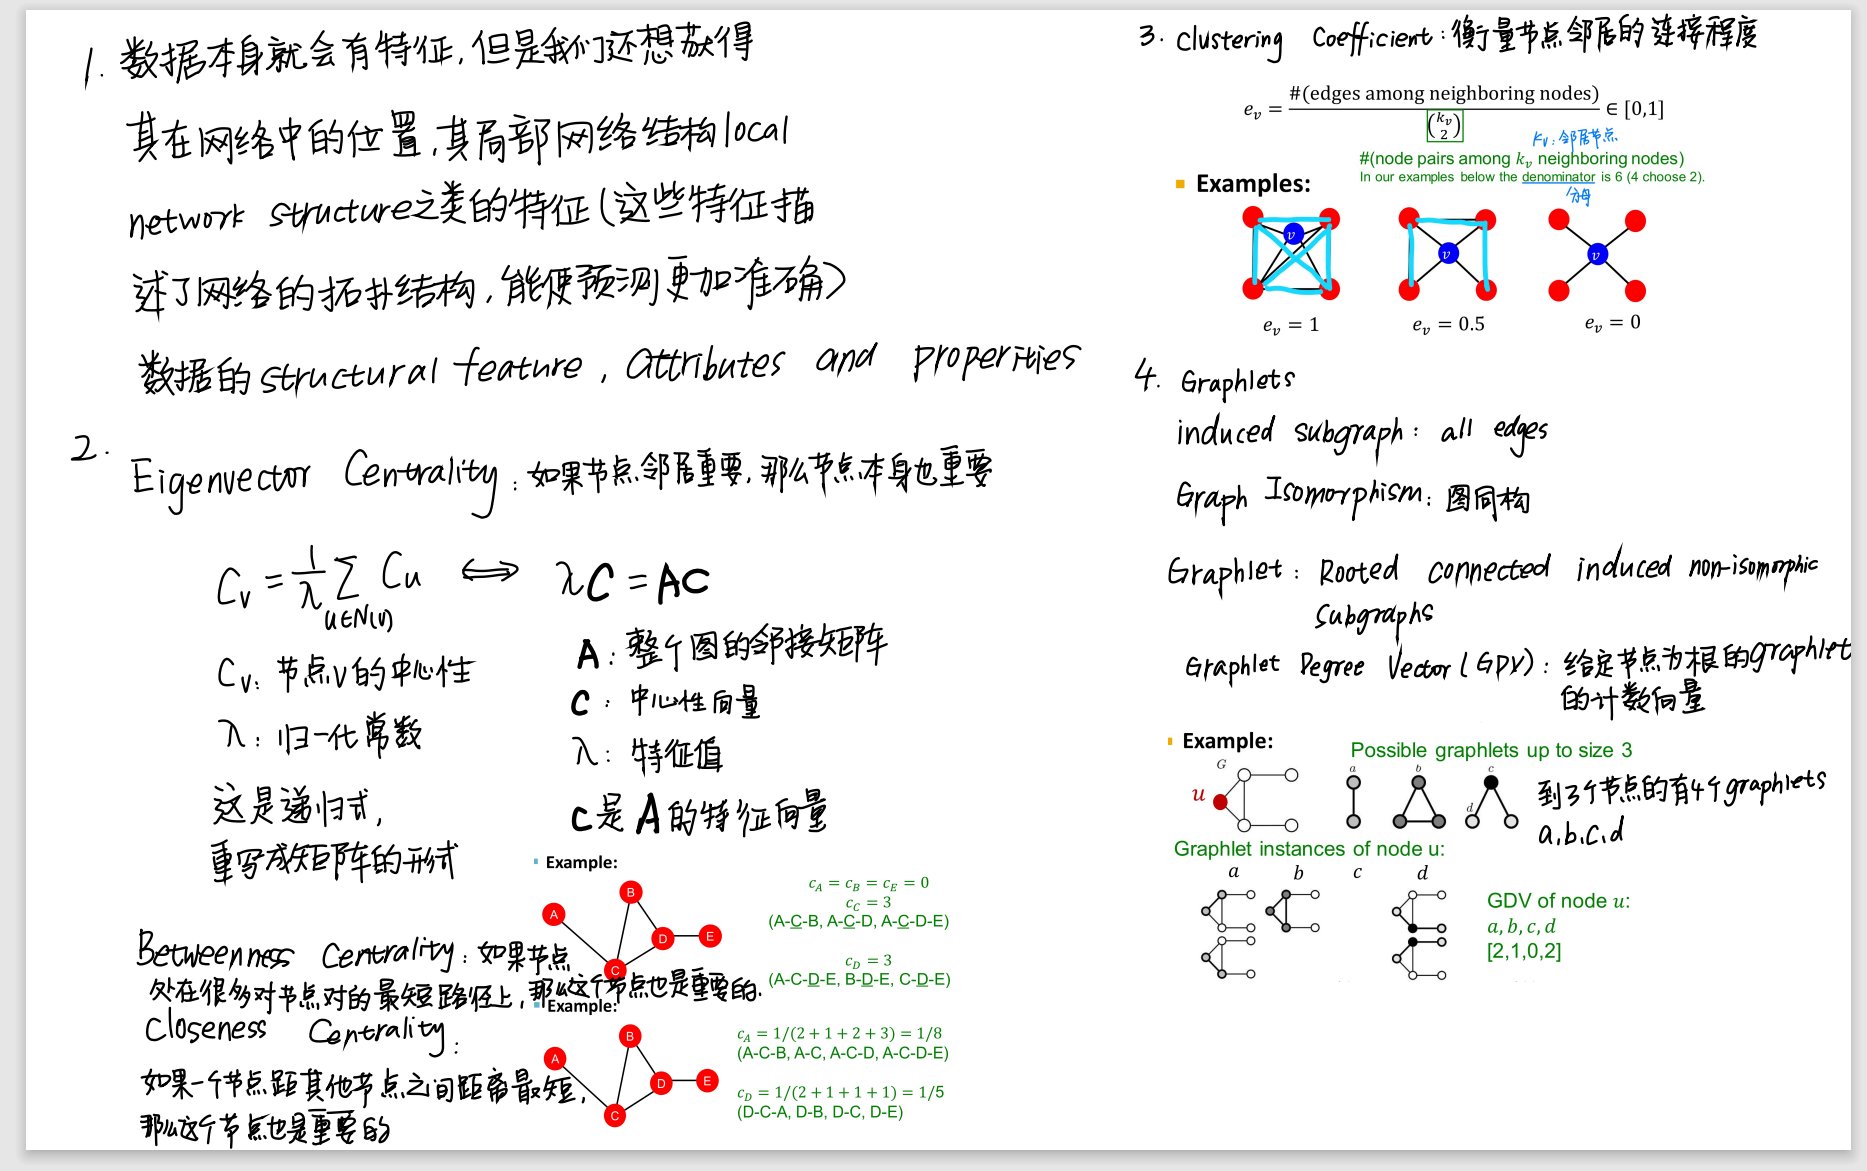 1. 数据本身就会有特征,但是我们还想获得
其在网络中的位置,其局部网络结构local
network structure之类的特征(这些特征描
述了网络的拓扑结构,能使预测更加准确)
数据的structural feature, attributes and properities
2.
Eigenvector Centrality: 如果节点邻居重要,那么节点本身也重要
Cv = 1/λ ∑ Cu ⟺ λC = AC
u∈N(v)
Cv: 节点v的中心性
λ: 归一化常数
这是递归式,
重写成矩阵的形式
A: 整个图的邻接矩阵
C: 中心性向量
λ: 特征值
C是A的特征向量
Example:
A
B
C
D
E
c_A = c_B = c_E = 0
c_C = 3
(A-C-B, A-C-D, A-C-D-E)
c_D = 3
(A-C-D-E, B-D-E, C-D-E)
Betweenness Centrality: 如果节点
处在很多对节点对的最短路径上,那么这个节点也是重要的.
Closeness Centrality:
如果一个节点距其他节点之间距离最短,
那么这个节点也是重要的
Example:
A
B
C
D
E
c_A = 1/(2 + 1 + 2 + 3) = 1/8
(A-C-B, A-C, A-C-D, A-C-D-E)
c_D = 1/(2 + 1 + 1 + 1) = 1/5
(D-C-A, D-B, D-C, D-E)
3. Clustering Coefficient: 衡量节点邻居的连接程度
e_v = #(edges among neighboring nodes) / (k_v 2) ∈ [0,1]
kv: 邻居节点
#(node pairs among k_v neighboring nodes)
In our examples below the denominator is 6 (4 choose 2).
分母
Examples:
v
v
v
e_v = 1
e_v = 0.5
e_v = 0
4. Graphlets
induced subgraph: all edges
Graph Isomorphism: 图同构
Graphlet: Rooted connected induced non-isomorphic
subgraphs
Graphlet Degree Vector (GDV): 给定节点为根的graphlet
的计数向量
Example:
Possible graphlets up to size 3
G
u
a
b
c
d
到3个节点的有4个graphlets
a,b,c,d
Graphlet instances of node u:
a b c d
GDV of node u:
a, b, c, d
[2,1,0,2]